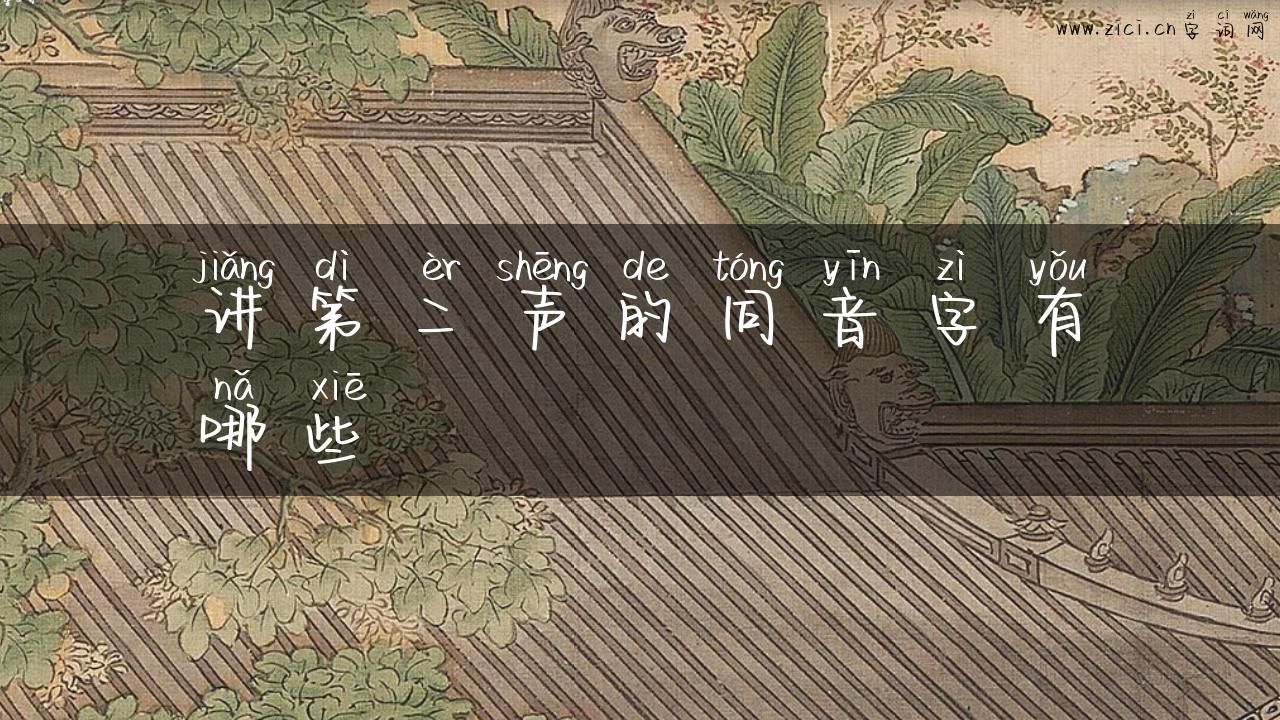 zì cí wǎng
www.zici.cn 字 词 网
jiǎng dì èr shēng de tóng yīn zì yǒu
讲 第 二 声 的 同 音 字 有
nǎ xiē
哪 些